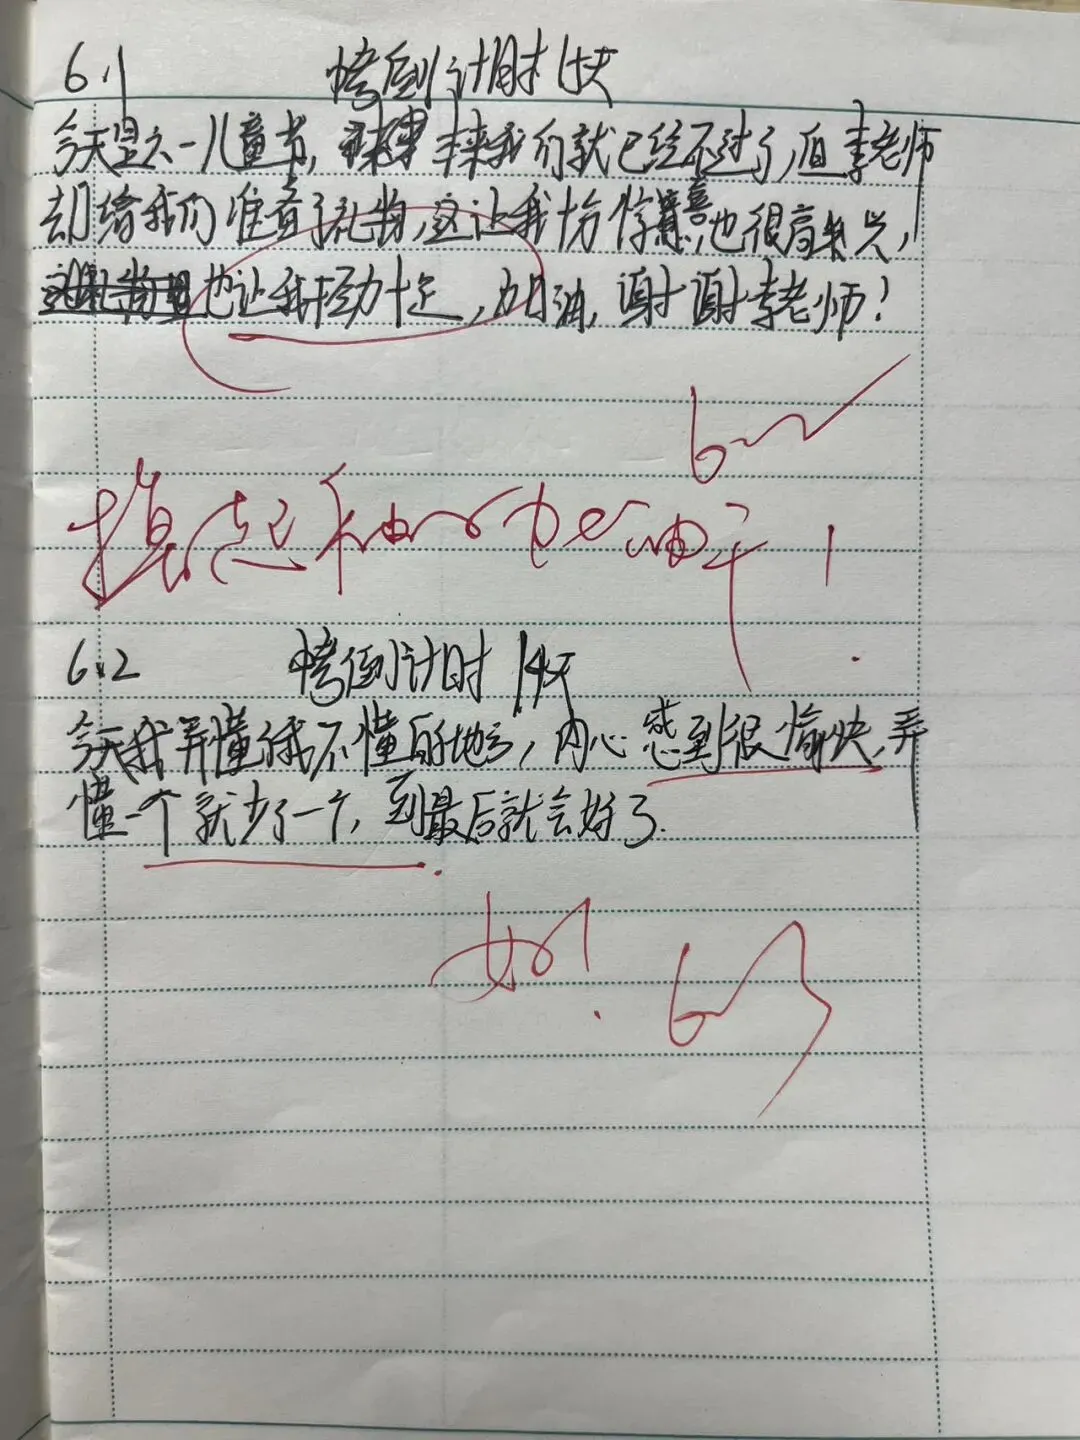 6.1 中考倒计时15天
今天是六一儿童节,本来我们就已经不过了,但李老师
却给我们准备了礼物,这让我十分惊喜,也很高兴,
也让我干劲十足,加油,谢谢李老师!
6.2
撸起袖子加油干!
6.2 中考倒计时14天
今天我弄懂了我不懂的地方,内心感到很愉快,弄
懂一个就少了一个,到最后就会好了.
好!
6.3